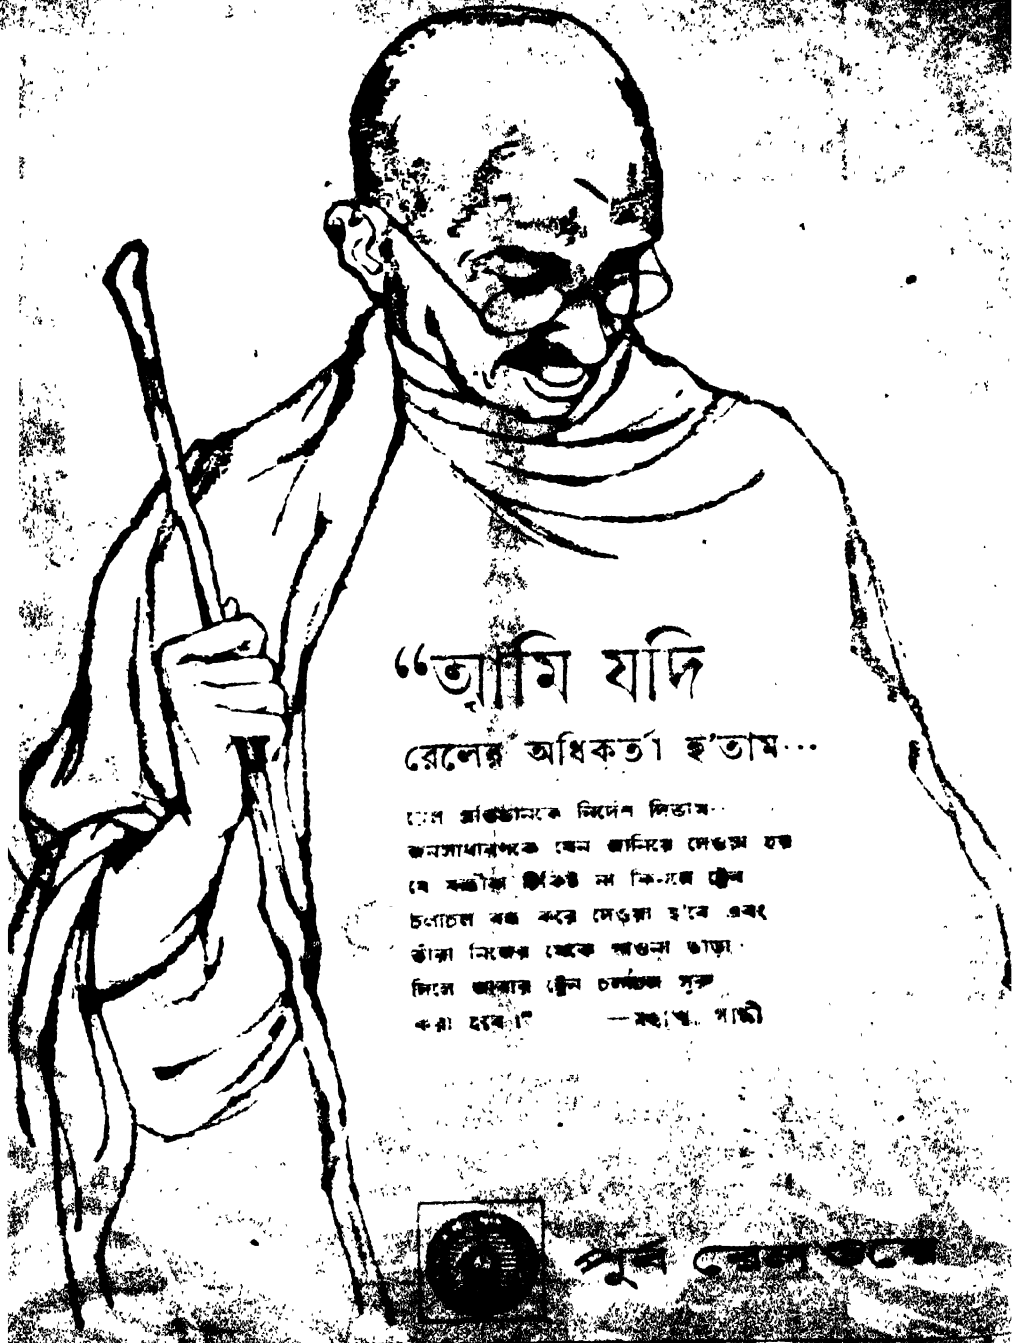 “আমি যদি
রেলের অধিকর্তা হ'তাম...
রেল প্রতিষ্ঠানকে নির্দেশ দিতাম..
জনসাধারণকে যেন জানিয়ে দেওয়া হয়
যে যাত্রীরা টিকিট না কিনলে ট্রেন
চলাচল বন্ধ করে দেওয়া হ'বে এবং
তাঁরা নিজের থেকে পাওনা ভাড়া
দিলে আবার ট্রেন চলাচল সুরু
করা হবে।” —মহাত্মা গান্ধী
পূর্ব রেলওয়ে